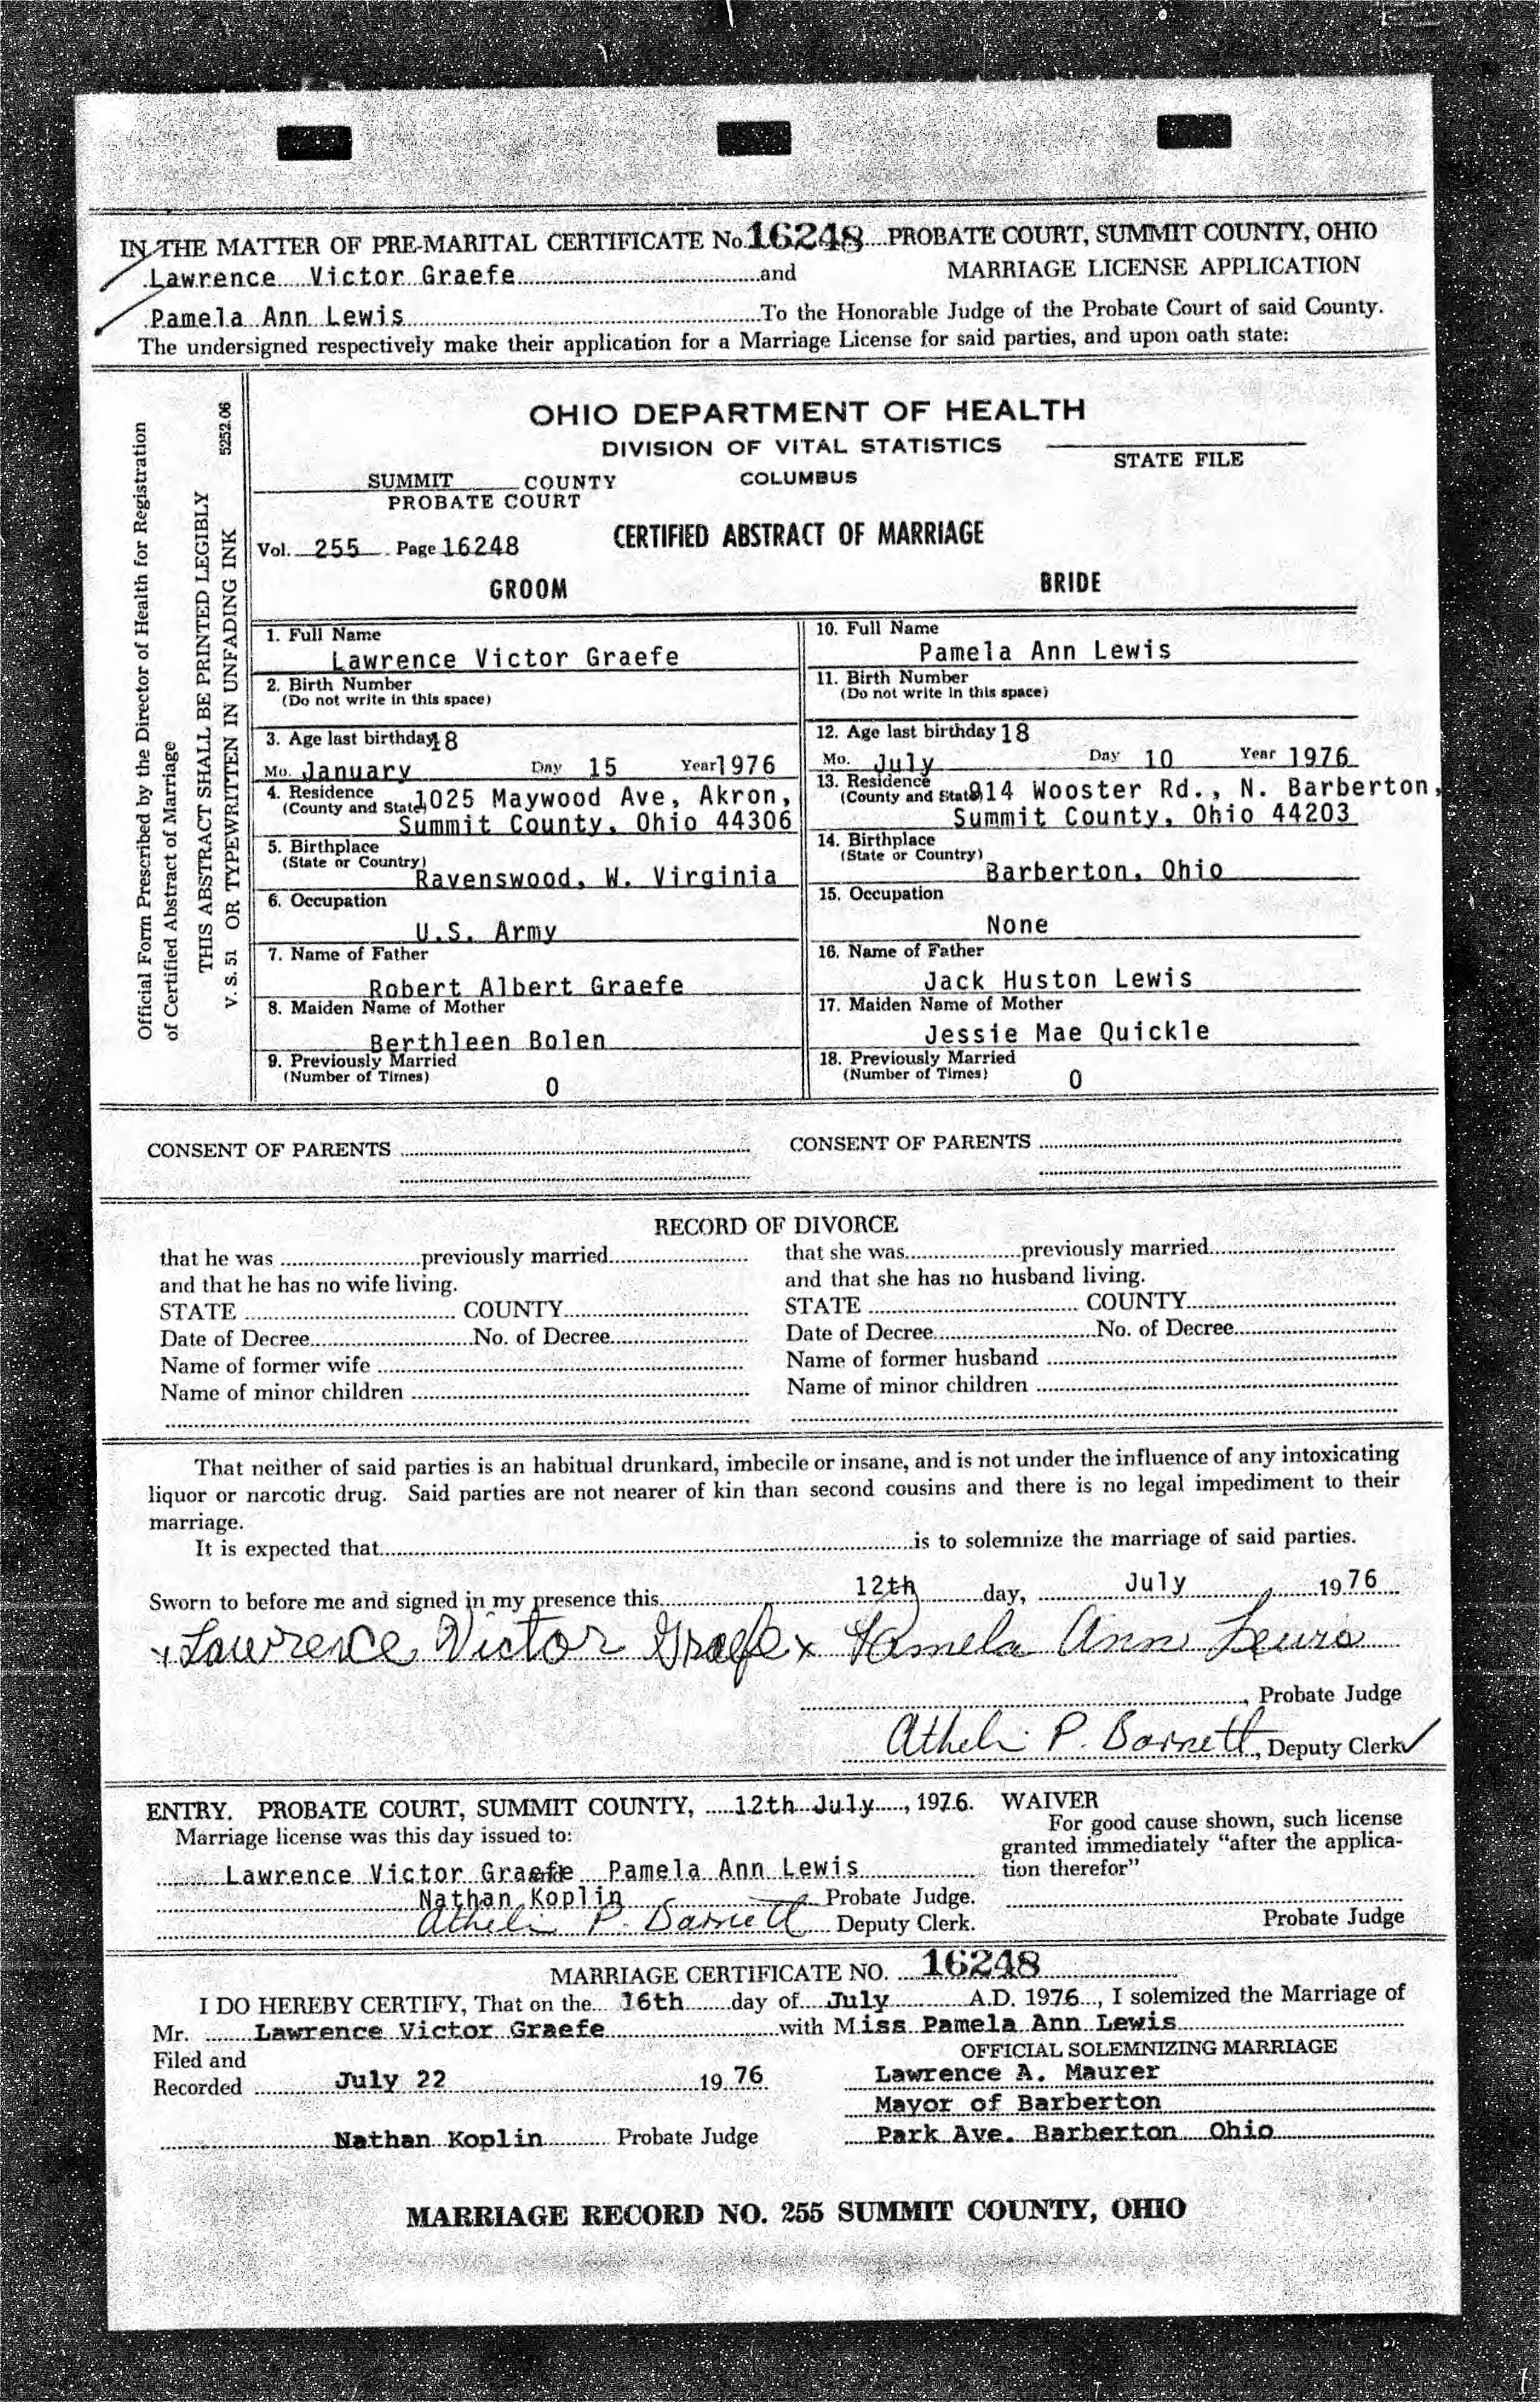 IN THE MATTER OF PRE-MARITAL CERTIFICATE No. 16248 PROBATE COURT, SUMMIT COUNTY, OHIO
Lawrence Victor Graefe and MARRIAGE LICENSE APPLICATION
Pamela Ann Lewis To the Honorable Judge of the Probate Court of said County.
The undersigned respectively make their application for a Marriage License for said parties, and upon oath state:
Official Form Prescribed by the Director of Health for Registration
of Certified Abstract of Marriage
THIS ABSTRACT SHALL BE PRINTED LEGIBLY
V. S. 51 OR TYPEWRITTEN IN UNFADING INK 5252.06
OHIO DEPARTMENT OF HEALTH
DIVISION OF VITAL STATISTICS
STATE FILE
SUMMIT COUNTY COLUMBUS
PROBATE COURT
Vol. 255 Page 16248 CERTIFIED ABSTRACT OF MARRIAGE
GROOM BRIDE
1. Full Name
Lawrence Victor Graefe
2. Birth Number
(Do not write in this space)
3. Age last birthday 18
Mo. January Day 15 Year 1976
4. Residence
(County and State) 1025 Maywood Ave, Akron,
Summit County, Ohio 44306
5. Birthplace
(State or Country)
Ravenswood, W. Virginia
6. Occupation
U.S. Army
7. Name of Father
Robert Albert Graefe
8. Maiden Name of Mother
Berthleen Bolen
9. Previously Married
(Number of Times) 0
10. Full Name
Pamela Ann Lewis
11. Birth Number
(Do not write in this space)
12. Age last birthday 18
Mo. July Day 10 Year 1976
13. Residence
(County and State) 914 Wooster Rd., N. Barberton,
Summit County, Ohio 44203
14. Birthplace
(State or Country)
Barberton, Ohio
15. Occupation
None
16. Name of Father
Jack Huston Lewis
17. Maiden Name of Mother
Jessie Mae Quickle
18. Previously Married
(Number of Times) 0
CONSENT OF PARENTS CONSENT OF PARENTS
RECORD OF DIVORCE
that he was previously married
and that he has no wife living.
STATE COUNTY
Date of Decree No. of Decree
Name of former wife
Name of minor children
that she was previously married
and that she has no husband living.
STATE COUNTY
Date of Decree No. of Decree
Name of former husband
Name of minor children
That neither of said parties is an habitual drunkard, imbecile or insane, and is not under the influence of any intoxicating
liquor or narcotic drug. Said parties are not nearer of kin than second cousins and there is no legal impediment to their
marriage.
It is expected that is to solemnize the marriage of said parties.
Sworn to before me and signed in my presence this 12th day, July 1976
x Lawrence Victor Graefe x Pamela Ann Lewis
, Probate Judge
P. Barnett, Deputy Clerk
ENTRY. PROBATE COURT, SUMMIT COUNTY, 12th July, 1976.
Marriage license was this day issued to:
Lawrence Victor Graefe and Pamela Ann Lewis
Nathan Koplin Probate Judge.
P. Barnett Deputy Clerk.
WAIVER
For good cause shown, such license
granted immediately "after the applica-
tion therefor"
Probate Judge
MARRIAGE CERTIFICATE NO. 16248
I DO HEREBY CERTIFY, That on the 16th day of July A.D. 1976, I solemized the Marriage of
Mr. Lawrence Victor Graefe with Miss Pamela Ann Lewis
Filed and
Recorded July 22 1976
Nathan Koplin Probate Judge
OFFICIAL SOLEMNIZING MARRIAGE
Lawrence A. Maurer
Mayor of Barberton
Park Ave. Barberton Ohio
MARRIAGE RECORD NO. 255 SUMMIT COUNTY, OHIO